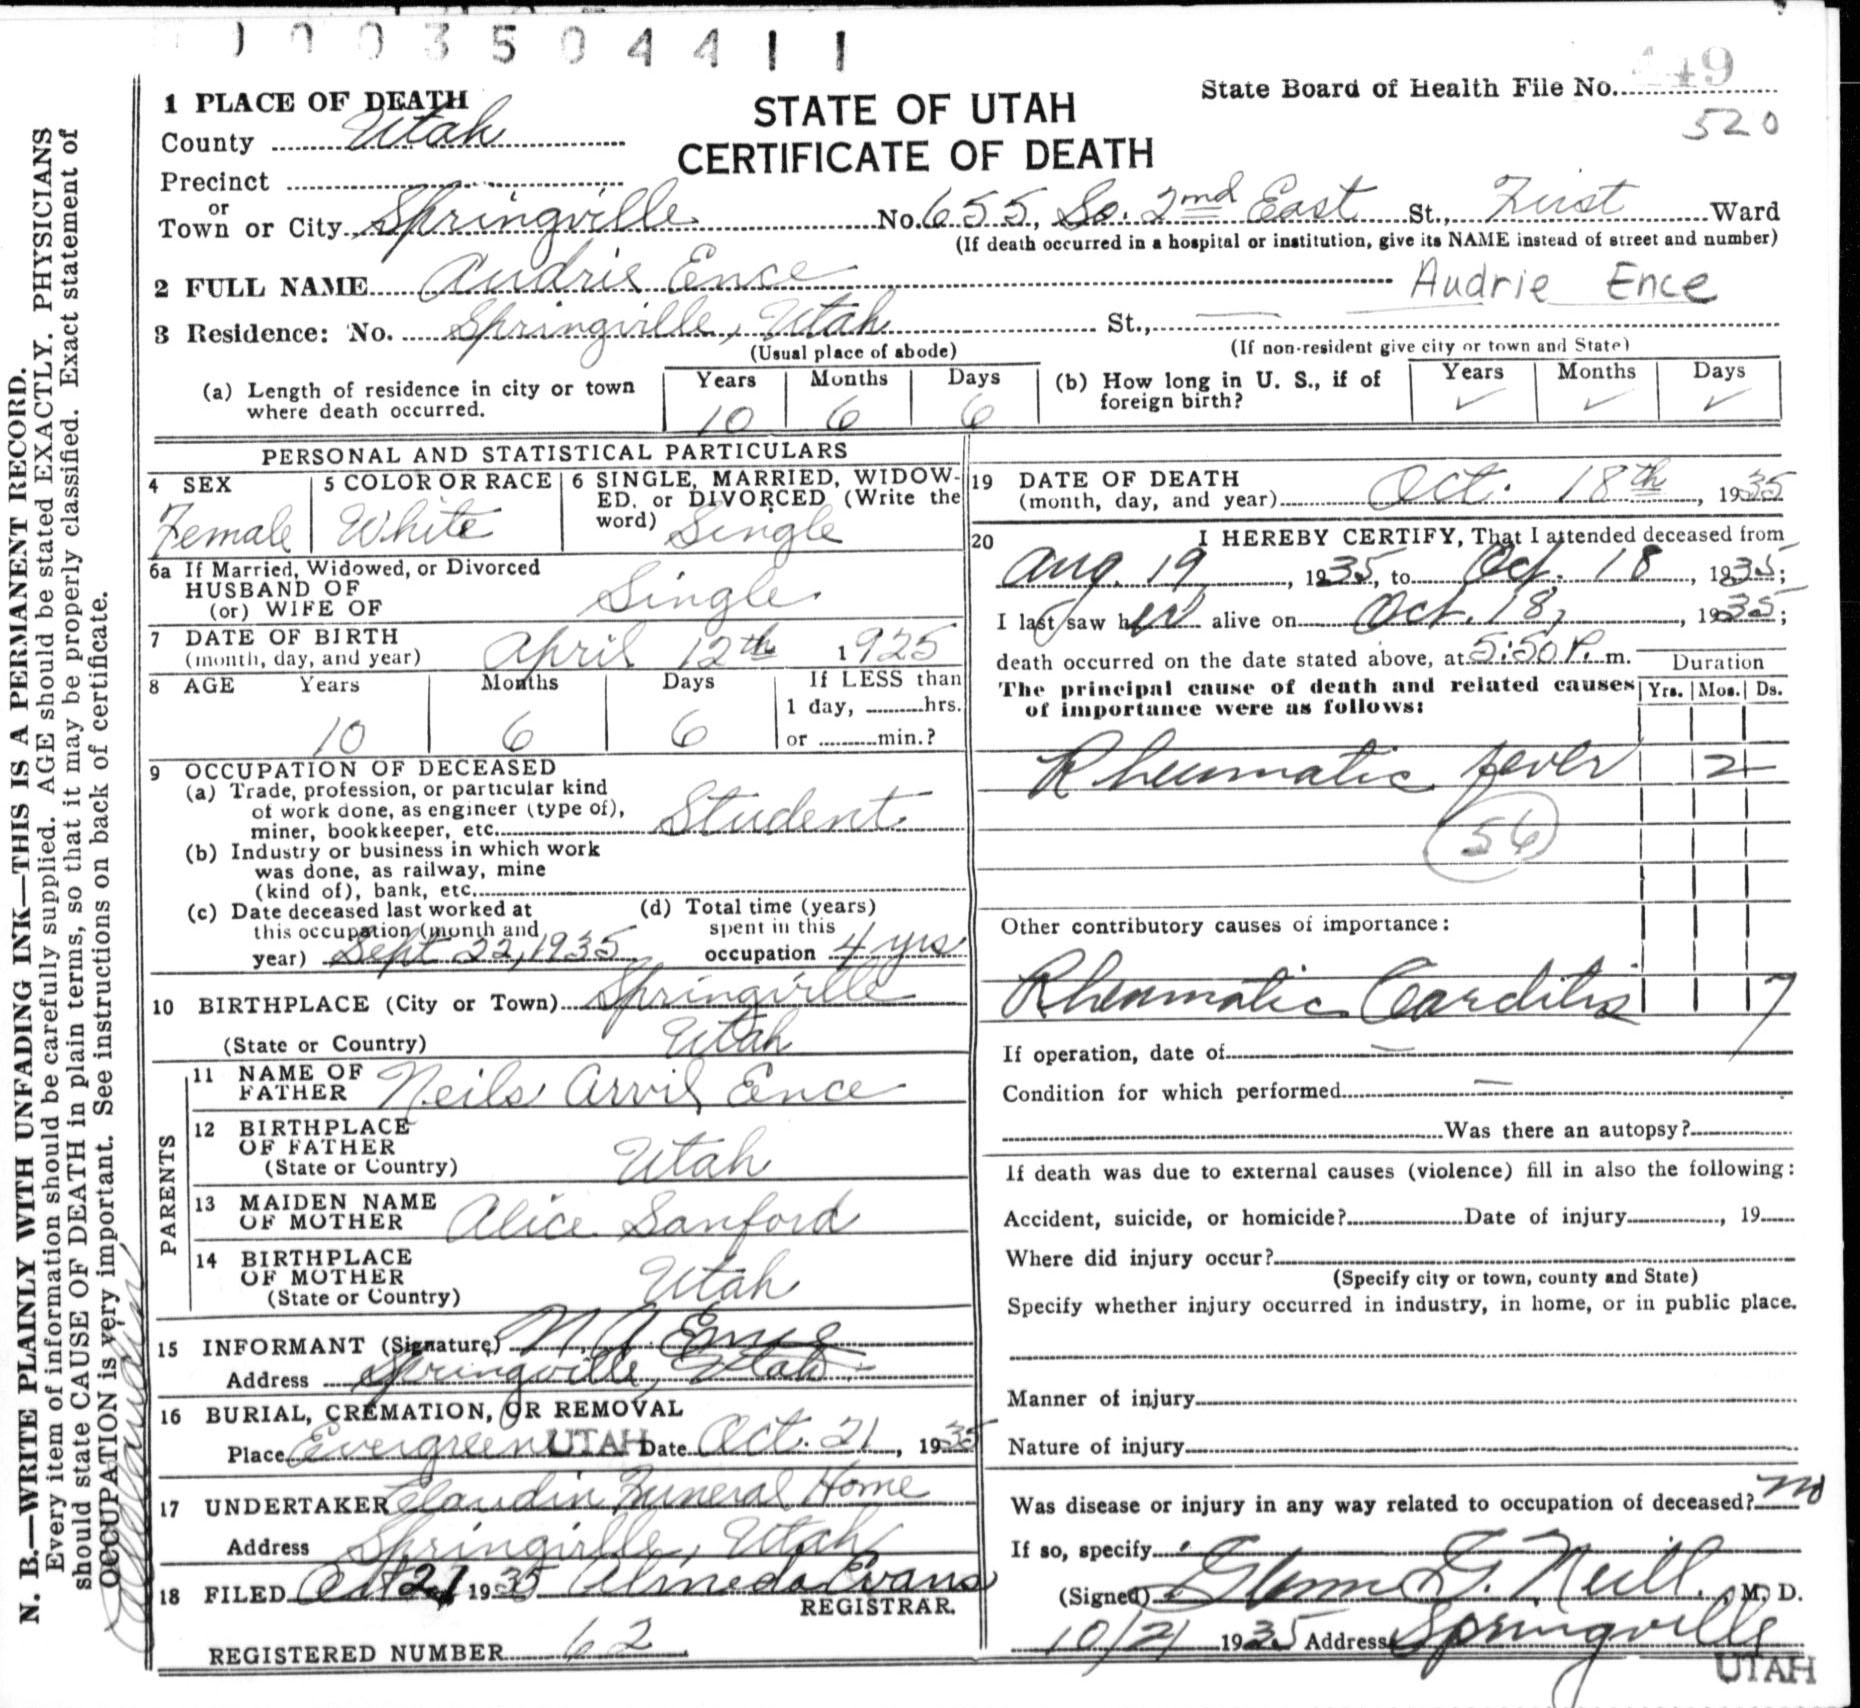 1003504411
1 PLACE OF DEATH
STATE OF UTAH
CERTIFICATE OF DEATH
State Board of Health File No. 449
520
County Utah
Precinct
or
Town or City Springville No. 655, So. 2nd East St., First Ward
(If death occurred in a hospital or institution, give its NAME instead of street and number)
2 FULL NAME Audrie Ence Audrie Ence
3 Residence: No. Springville, Utah St.,
(Usual place of abode) (If non-resident give city or town and State)
(a) Length of residence in city or town where death occurred. Years 10 Months 6 Days 6
(b) How long in U. S., if of foreign birth? Years ✓ Months ✓ Days ✓
PERSONAL AND STATISTICAL PARTICULARS
4 SEX Female
5 COLOR OR RACE White
6 SINGLE, MARRIED, WIDOW-
ED, or DIVORCED (Write the
word) Single
6a If Married, Widowed, or Divorced
HUSBAND OF
(or) WIFE OF Single
7 DATE OF BIRTH
(month, day, and year) April 12th 1925
8 AGE Years 10 Months 6 Days 6 If LESS than
1 day, hrs.
or min.?
9 OCCUPATION OF DECEASED
(a) Trade, profession, or particular kind
of work done, as engineer (type of),
miner, bookkeeper, etc. Student
(b) Industry or business in which work
was done, as railway, mine
(kind of), bank, etc.
(c) Date deceased last worked at
this occupation (month and
year) Sept 22, 1935
(d) Total time (years)
spent in this
occupation 4 yrs
10 BIRTHPLACE (City or Town) Springville
(State or Country) Utah
PARENTS
11 NAME OF
FATHER Neils Arvil Ence
12 BIRTHPLACE
OF FATHER
(State or Country) Utah
13 MAIDEN NAME
OF MOTHER Alice Sanford
14 BIRTHPLACE
OF MOTHER
(State or Country) Utah
15 INFORMANT (Signature) N. A. Ence
Address Springville, Utah
16 BURIAL, CREMATION, OR REMOVAL
Place Evergreen UTAH Date Oct. 21, 1935
17 UNDERTAKER Claudin Funeral Home
Address Springville, Utah
18 FILED Oct 21 1935 Almeda Evans
REGISTRAR.
REGISTERED NUMBER 62
19 DATE OF DEATH
(month, day, and year) Oct. 18th, 1935
20 I HEREBY CERTIFY, That I attended deceased from
Aug. 19, 1935, to Oct. 18, 1935;
I last saw her alive on Oct. 18, 1935;
death occurred on the date stated above, at 5:50 P. m.
Duration
The principal cause of death and related causes
of importance were as follows:
Yrs. Mos. Ds.
Rheumatic fever 2
56
Other contributory causes of importance:
Rheumatic Carditis 7
If operation, date of
Condition for which performed
Was there an autopsy?
If death was due to external causes (violence) fill in also the following:
Accident, suicide, or homicide? Date of injury , 19
Where did injury occur?
(Specify city or town, county and State)
Specify whether injury occurred in industry, in home, or in public place.
Manner of injury
Nature of injury
Was disease or injury in any way related to occupation of deceased? no
If so, specify
(Signed) Glenn G. Neill, M. D.
10/21 1935 Address Springville
UTAH
N. B.—WRITE PLAINLY WITH UNFADING INK—THIS IS A PERMANENT RECORD.
Every item of information should be carefully supplied. AGE should be stated EXACTLY. PHYSICIANS
should state CAUSE OF DEATH in plain terms, so that it may be properly classified. Exact statement of
OCCUPATION is very important. See instructions on back of certificate.